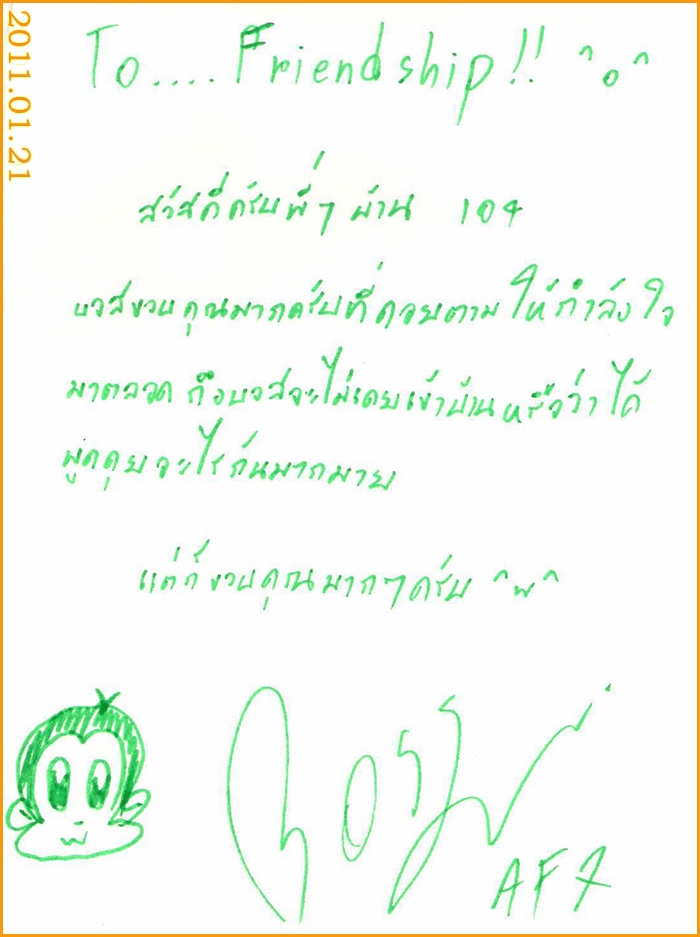 2011.01.21
To.... Friendship!! ^o^
สวัสดีครับพี่ๆ บ้าน 104
บอสขอบคุณมากครับที่คอยตามให้กำลังใจ
มาตลอด ถึงบอสจะไม่เคยเข้าบ้านหรือว่าได้
พูดคุยอะไรกันมากมาย
แต่ก็ขอบคุณมากๆครับ ^w^
AF7